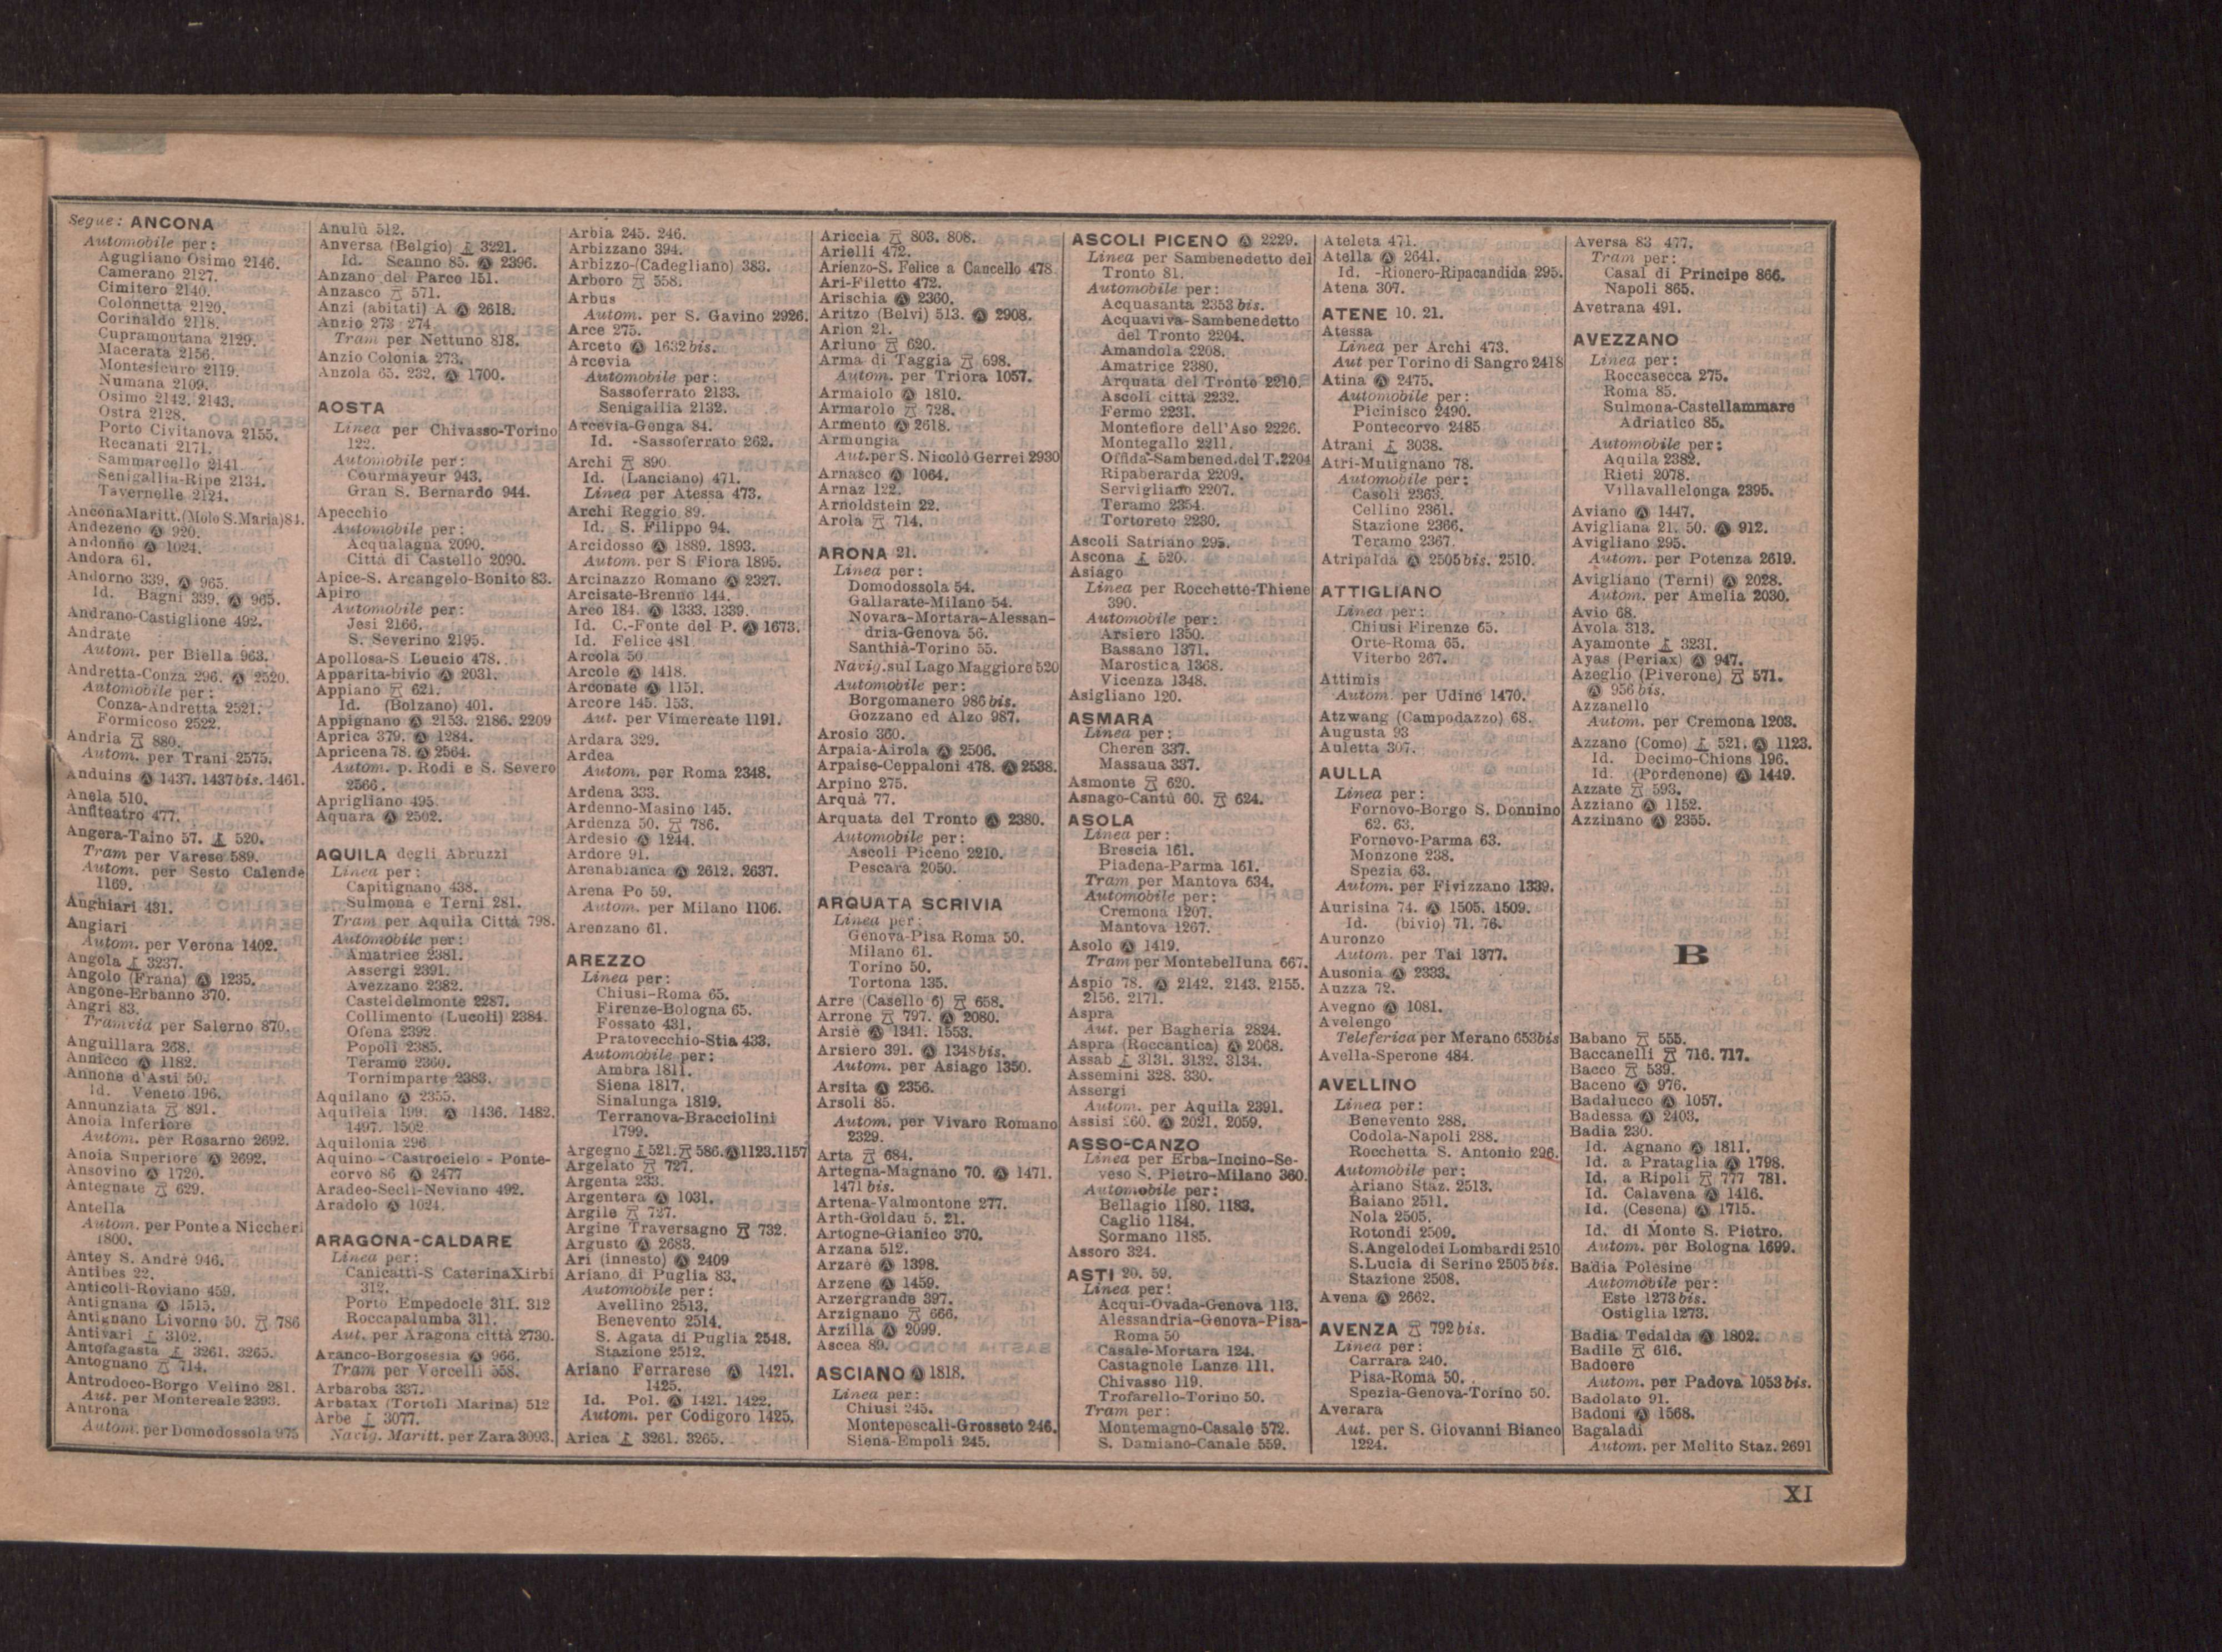 Segue: ANCONA
Automobile per:
Agugliano Osimo 2146.
Camerano 2127.
Cimitero 2140.
Colonnetta 2120.
Corinaldo 2118.
Cupramontana 2129.
Macerata 2156.
Montesicuro 2119.
Numana 2109.
Osimo 2142. 2143.
Ostra 2128.
Porto Civitanova 2155.
Recanati 2171.
Sammarcello 2141
Senigallia-Ripe 2134.
Tavernelle 2124.
Ancona Maritt. (Molo S. Maria) 84.
Andezeno Ⓐ 920.
Andonno Ⓐ 1024.
Andora 61.
Andorno 339. Ⓐ 965.
Id. Bagni 339. Ⓐ 965.
Andrano-Castiglione 492.
Andrate
Autom. per Biella 963.
Andretta-Conza 296. Ⓐ 2520.
Automobile per:
Conza-Andretta 2521.
Formicoso 2522.
Andria 880.
Autom. per Trani 2575.
Anduins Ⓐ 1437. 1437bis. 1461.
Anela 510.
Anfiteatro 477.
Angera-Taino 57. 520.
Tram per Varese 589.
Autom. per Sesto Calende
1169.
Anghiari 431.
Angiari
Autom. per Verona 1402.
Angola 3237.
Angolo (Frana) Ⓐ 1235.
Angone-Erbanno 370.
Angri 83.
Tramvia per Salerno 870.
Anguillara 268.
Annicco Ⓐ 1182.
Annone d'Asti 50.
Id. Veneto 196.
Annunziata 891.
Anoia Inferiore
Autom. per Rosarno 2692.
Anoia Superiore Ⓐ 2692.
Ansovino Ⓐ 1720.
Antegnate 629.
Antella
Autom. per Ponte a Niccheri
1800.
Antey S. Andrè 946.
Antibes 22.
Anticoli-Roviano 459.
Antignana Ⓐ 1515.
Antignano Livorno 50. 786
Antivari 3102.
Antofagasta 3261. 3265.
Antognano 714.
Antrodoco-Borgo Velino 281.
Aut. per Montereale 2393.
Antrona
Autom. per Domodossola 975
Anulù 512.
Anversa (Belgio) 3221.
Id. Scanno 85. Ⓐ 2396.
Anzano del Parco 151.
Anzasco 571.
Anzi (abitati) A Ⓐ 2618.
Anzio 273 274
Tram per Nettuno 818.
Anzio Colonia 273.
Anzola 65. 232. Ⓐ 1700.
AOSTA
Linea per Chivasso-Torino
122.
Automobile per:
Courmayeur 943.
Gran S. Bernardo 944.
Apecchio
Automobile per:
Acqualagna 2090.
Città di Castello 2090.
Apice-S. Arcangelo-Bonito 83.
Apiro
Automobile per:
Jesi 2166.
S. Severino 2195.
Apollosa-S Leucio 478.
Apparita-bivio Ⓐ 2031.
Appiano 621.
Id. (Bolzano) 401.
Appignano Ⓐ 2153. 2186. 2209
Aprica 379. Ⓐ 1284.
Apricena 78. Ⓐ 2564.
Autom. p. Rodi e S. Severo
2566.
Aprigliano 495.
Aquara Ⓐ 2502.
AQUILA degli Abruzzi
Linea per:
Capitignano 438.
Sulmona e Terni 281.
Tram per Aquila Città 798.
Automobile per:
Amatrice 2381.
Assergi 2391.
Avezzano 2382.
Casteldelmonte 2287.
Collimento (Lucoli) 2384.
Ofena 2392
Popoli 2385.
Teramo 2360.
Tornimparte 2383.
Aquilano Ⓐ 2355.
Aquileia 199. Ⓐ 1436. 1482.
1497. 1502
Aquilonia 296
Aquino - Castrocielo - Ponte-
corvo 86 Ⓐ 2477
Aradeo-Secli-Neviano 492.
Aradolo Ⓐ 1024.
ARAGONA-CALDARE
Linea per:
Canicatti-S Caterina Xirbi
312.
Porto Empedocle 311. 312
Roccapalumba 311.
Aut. per Aragona città 2730.
Aranco-Borgosesia Ⓐ 966.
Tram per Vercelli 558.
Arbaroba 337.
Arbatax (Tortoli Marina) 512
Arbe 3077.
Navig. Maritt. per Zara 3093.
Arbia 245. 246.
Arbizzano 394.
Arbizzo-(Cadegliano) 383.
Arboro 558.
Arbus
Autom. per S. Gavino 2926.
Arce 275.
Arceto Ⓐ 1632bis.
Arcevia
Automobile per:
Sassoferrato 2133.
Senigallia 2132.
Arcevia-Genga 84.
Id. -Sassoferrato 262.
Archi 890
Id. (Lanciano) 471.
Linea per Atessa 473.
Archi Reggio 89.
Id. S. Filippo 94.
Arcidosso Ⓐ 1889. 1893.
Autom. per S Fiora 1895.
Arcinazzo Romano Ⓐ 2327.
Arcisate-Brenno 144.
Arco 184. Ⓐ 1333. 1339.
Id. C.-Fonte del P. Ⓐ 1673.
Id. Felice 481
Arcola 50
Arcole Ⓐ 1418.
Arconate Ⓐ 1151.
Arcore 145. 153.
Aut. per Vimercate 1191.
Ardara 329.
Ardea
Autom. per Roma 2348.
Ardena 333.
Ardenno-Masino 145.
Ardenza 50. 786.
Ardesio Ⓐ 1244.
Ardore 91.
Arenabianca Ⓐ 2612. 2637.
Arena Po 59.
Autom. per Milano 1106.
Arenzano 61.
AREZZO
Linea per:
Chiusi-Roma 65.
Firenze-Bologna 65.
Fossato 431.
Pratovecchio-Stia 433.
Automobile per:
Ambra 1811.
Siena 1817.
Sinalunga 1819.
Terranova-Bracciolini
1799.
Argegno 521. 586. Ⓐ 1123.1157
Argelato 727.
Argenta 233.
Argentera Ⓐ 1031.
Argile 727.
Argine Traversagno 732.
Argusto Ⓐ 2683.
Ari (innesto) Ⓐ 2409
Ariano di Puglia 83.
Automobile per:
Avellino 2513.
Benevento 2514.
S. Agata di Puglia 2548.
Stazione 2512.
Ariano Ferrarese Ⓐ 1421.
1425.
Id. Pol. Ⓐ 1421. 1422.
Autom. per Codigoro 1425.
Arica 3261. 3265.
Ariccia 803. 808.
Arielli 472.
Arienzo-S. Felice a Cancello 478
Ari-Filetto 472.
Arischia Ⓐ 2360.
Aritzo (Belvi) 513. Ⓐ 2908.
Arlon 21.
Arluno 620.
Arma di Taggia 698.
Autom. per Triora 1057.
Armaiolo Ⓐ 1810.
Armarolo 728.
Armento Ⓐ 2618.
Armungia
Aut. per S. Nicolò Gerrei 2930
Arnasco Ⓐ 1064.
Arnaz 122.
Arnoldstein 22.
Arola 714.
ARONA 21.
Linea per:
Domodossola 54.
Gallarate-Milano 54.
Novara-Mortara-Alessan-
dria-Genova 56.
Santhià-Torino 55.
Navig. sul Lago Maggiore 520
Automobile per:
Borgomanero 986bis.
Gozzano ed Alzo 987.
Arosio 360.
Arpaia-Airola Ⓐ 2506.
Arpaise-Ceppaloni 478. Ⓐ 2538.
Arpino 275.
Arquà 77.
Arquata del Tronto Ⓐ 2380.
Automobile per:
Ascoli Piceno 2210.
Pescara 2050.
ARQUATA SCRIVIA
Linea per:
Genova-Pisa Roma 50.
Milano 61.
Torino 50.
Tortona 135.
Arre (Casello 6) 658.
Arrone 797. Ⓐ 2080.
Arsiè Ⓐ 1341. 1553.
Arsiero 391. Ⓐ 1348bis.
Autom. per Asiago 1350.
Arsita Ⓐ 2356.
Arsoli 85.
Autom. per Vivaro Romano
2329.
Arta 684.
Artegna-Magnano 70. Ⓐ 1471.
1471 bis.
Artena-Valmontone 277.
Arth-Goldau 5. 21.
Artogne-Gianico 370.
Arzana 512.
Arzarè Ⓐ 1398.
Arzene Ⓐ 1459.
Arzergrande 397.
Arzignano 666.
Arzilla Ⓐ 2099.
Ascea 89.
ASCIANO Ⓐ 1818.
Linea per:
Chiusi 245.
Montepescali-Grosseto 246.
Siena-Empoli 245.
ASCOLI PICENO Ⓐ 2229.
Linea per Sambenedetto del
Tronto 81.
Automobile per:
Acquasanta 2353 bis.
Acquaviva-Sambenedetto
del Tronto 2204.
Amandola 2208.
Amatrice 2380.
Arquata del Tronto 2210.
Ascoli città 2232.
Fermo 2231.
Montefiore dell'Aso 2226.
Montegallo 2211.
Offida-Sambened. del T. 2204
Ripaberarda 2209.
Servigliano 2207.
Teramo 2354.
Tortoreto 2230.
Ascoli Satriano 295.
Ascona 520.
Asiago
Linea per Rocchette-Thiene
390.
Automobile per:
Arsiero 1350.
Bassano 1371.
Marostica 1368.
Vicenza 1348.
Asigliano 120.
ASMARA
Linea per:
Cheren 337.
Massaua 337.
Asmonte 620.
Asnago-Cantù 60. 624.
ASOLA
Linea per:
Brescia 161.
Piadena-Parma 161.
Tram per Mantova 634.
Automobile per:
Cremona 1207.
Mantova 1267.
Asolo Ⓐ 1419.
Tram per Montebelluna 667.
Aspio 78. Ⓐ 2142. 2143. 2155.
2156. 2171.
Aspra
Aut. per Bagheria 2824.
Aspra (Roccantica) Ⓐ 2068.
Assab 3131. 3132. 3134.
Assemini 328. 330.
Assergi
Autom. per Aquila 2391.
Assisi 260. Ⓐ 2021. 2059.
ASSO-CANZO
Linea per Erba-Incino-Se-
veso S. Pietro-Milano 360.
Automobile per:
Bellagio 1180. 1183.
Caglio 1184.
Sormano 1185.
Assoro 324.
ASTI 20. 59.
Linea per:
Acqui-Ovada-Genova 113.
Alessandria-Genova-Pisa-
Roma 50
Casale-Mortara 124.
Castagnole Lanze 111.
Chivasso 119.
Trofarello-Torino 50.
Tram per:
Montemagno-Casale 572.
S. Damiano-Canale 559.
Ateleta 471.
Atella Ⓐ 2641.
Id. -Rionero-Ripacandida 295.
Atena 307.
ATENE 10. 21.
Atessa
Linea per Archi 473.
Aut per Torino di Sangro 2418
Atina Ⓐ 2475.
Automobile per:
Picinisco 2490.
Pontecorvo 2485
Atrani 3038.
Atri-Mutignano 78.
Automobile per:
Casoli 2363.
Cellino 2361.
Stazione 2366.
Teramo 2367.
Atripalda Ⓐ 2505bis. 2510.
ATTIGLIANO
Linea per:
Chiusi Firenze 65.
Orte-Roma 65.
Viterbo 267.
Attimis
Autom. per Udine 1470.
Atzwang (Campodazzo) 68.
Augusta 93
Auletta 307.
AULLA
Linea per:
Fornovo-Borgo S. Donnino
62. 63.
Fornovo-Parma 63.
Monzone 238.
Spezia 63.
Autom. per Fivizzano 1339.
Aurisina 74. Ⓐ 1505. 1509.
Id. (bivio) 71. 76.
Auronzo
Autom. per Tai 1377.
Ausonia Ⓐ 2333.
Auzza 72.
Avegno Ⓐ 1081.
Avelengo
Teleferica per Merano 653bis
Avella-Sperone 484.
AVELLINO
Linea per:
Benevento 288.
Codola-Napoli 288.
Rocchetta S. Antonio 296.
Automobile per:
Ariano Staz. 2513.
Baiano 2511.
Nola 2505.
Rotondi 2509.
S. Angelo dei Lombardi 2510
S. Lucia di Serino 2505 bis.
Stazione 2508.
Avena Ⓐ 2662.
AVENZA 792bis.
Linea per:
Carrara 240.
Pisa-Roma 50.
Spezia-Genova-Torino 50.
Averara
Aut. per S. Giovanni Bianco
1224.
Aversa 83 477.
Tram per:
Casal di Principe 866.
Napoli 865.
Avetrana 491.
AVEZZANO
Linea per:
Roccasecca 275.
Roma 85.
Sulmona-Castellammare
Adriatico 85.
Automobile per:
Aquila 2382.
Rieti 2078.
Villavallelonga 2395.
Aviano Ⓐ 1447.
Avigliana 21. 50. Ⓐ 912.
Avigliano 295.
Autom. per Potenza 2619.
Avigliano (Terni) Ⓐ 2028.
Autom. per Amelia 2030.
Avio 68.
Avola 313.
Ayamonte 3231.
Ayas (Periax) Ⓐ 947.
Azeglio (Piverone) 571.
Ⓐ 956 bis.
Azzanello
Autom. per Cremona 1203.
Azzano (Como) 521. Ⓐ 1123.
Id. Decimo-Chions 196.
Id. (Pordenone) Ⓐ 1449.
Azzate 593.
Azziano Ⓐ 1152.
Azzinano Ⓐ 2355.
B
Babano 555.
Baccanelli 716. 717.
Bacco 539.
Baceno Ⓐ 976.
Badalucco Ⓐ 1057.
Badessa Ⓐ 2403.
Badia 230.
Id. Agnano Ⓐ 1811.
Id. a Prataglia Ⓐ 1798.
Id. a Ripoli 777 781.
Id. Calavena Ⓐ 1416.
Id. (Cesena) Ⓐ 1715.
Id. di Monte S. Pietro.
Autom. per Bologna 1699.
Badia Polesine
Automobile per:
Este 1273bis.
Ostiglia 1273.
Badia Tedalda Ⓐ 1802.
Badile 616.
Badoere
Autom. per Padova 1053bis.
Badolato 91.
Badoni Ⓐ 1568.
Bagaladi
Autom. per Melito Staz. 2691
XI